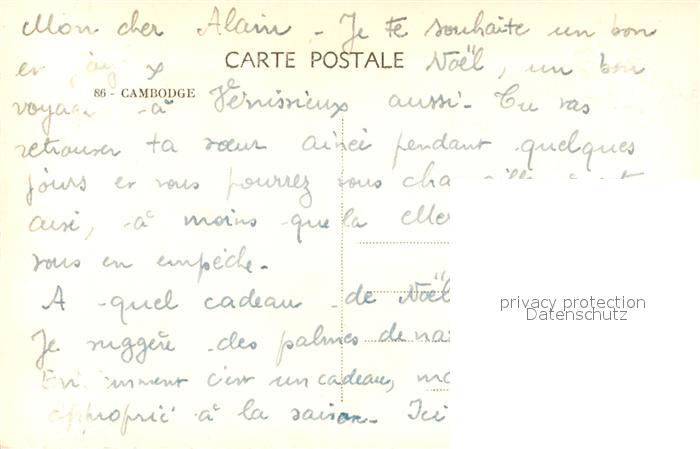 Mon cher Alain - Je te souhaite un bon
CARTE POSTALE
et Noël, un bon
86 - CAMBODGE
voyage à Vénissieux aussi - Tu vas
retrouver ta sœur ainsi pendant quelques
jours et vous pourrez vous
aussi, à moins que la Mer
vous en empêche -
A quel cadeau de Noël
Je suggère des palmes de
c'est un cadeau,
approprié à la saison - Ici
privacy protection
Datenschutz